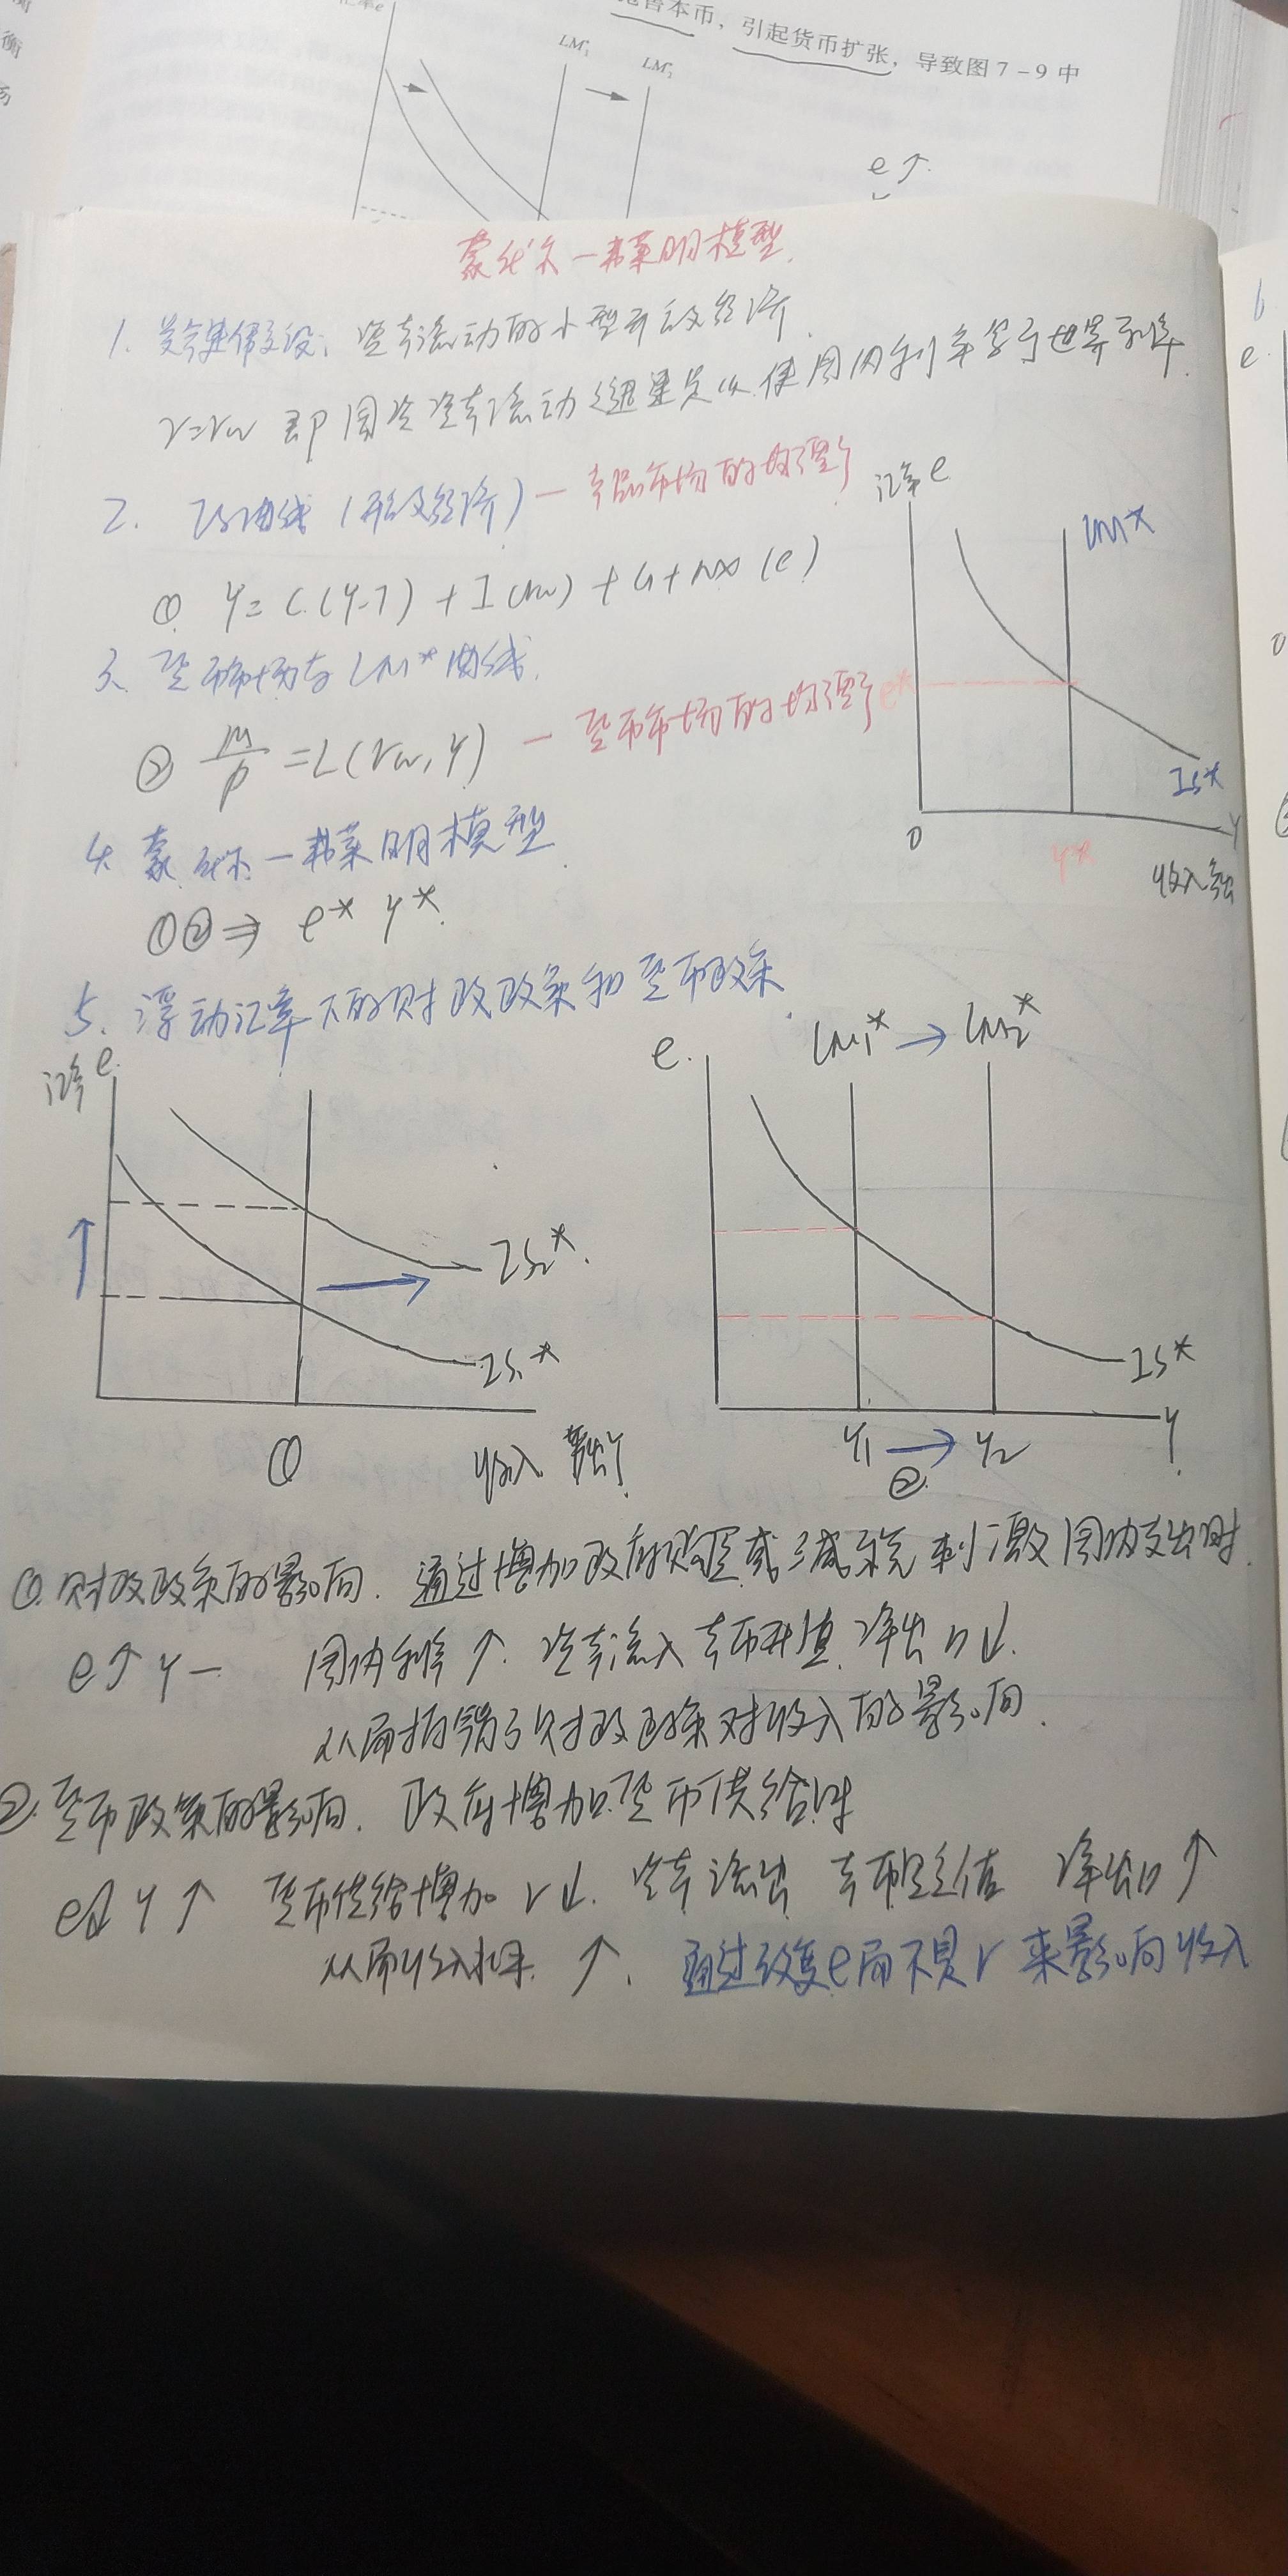 汇率e
本币，引起货币扩张，导致图7-9中
LM₁*
LM₂*
e↑
衡
蒙代尔一弗莱明模型.
1. 关键假设: 资本流动的小型开放经济.
r=rw 即国际资本流动 使国内利率等于世界利率.
2. IS*曲线(开放经济) — 产品市场的均衡
① Y=C(Y-T)+I(rw)+G+NX(e)
3. 货币市场与LM*曲线.
② M/P=L(rw,Y) — 货币市场的均衡
汇率e
LM*
e*
IS*
0
Y*
Y
收入 产出
4. 蒙代尔一弗莱明模型
①②⇒ e* Y*.
5. 浮动汇率下的财政政策和货币政策.
汇率e
IS₂*
IS₁*
①
收入 产出Y
e.
LM₁* → LM₂*
IS*
Y
Y₁ → Y₂
②.
①.财政政策的影响. 通过增加政府购买或减税刺激国内支出时.
e↑ Y— 国内利率↑. 资本流入 本币升值. 净出口↓.
从而抵销了财政政策对收入的影响.
②.货币政策的影响. 政府增加货币供给时
e↓ Y↑ 货币供给增加 r↓. 资本流出 本币贬值 净出口↑
从而收入水平. ↑. 通过改变e而不是r来影响收入